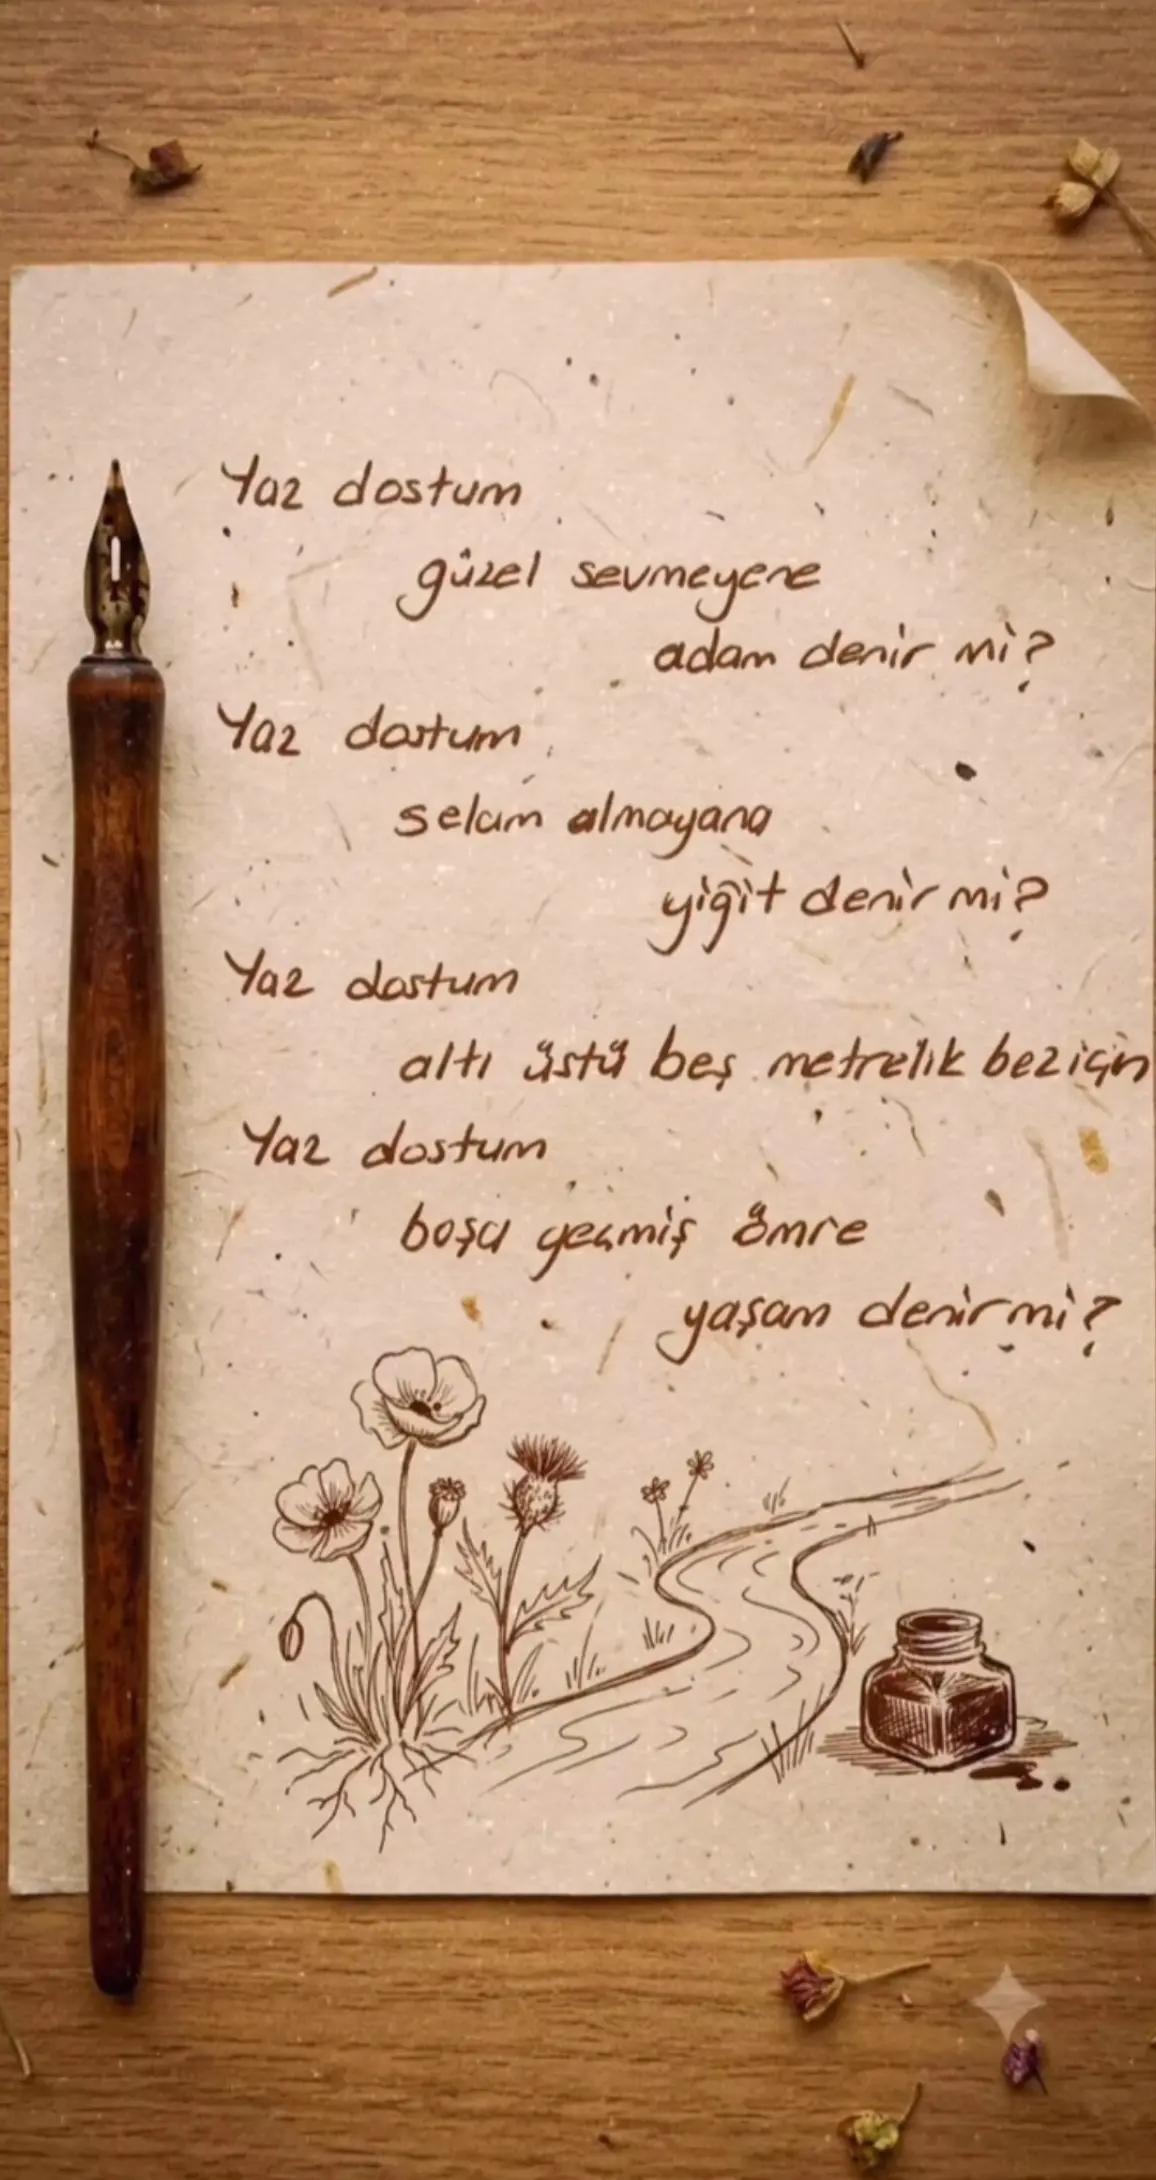 Yaz dostum
güzel sevmeyene
adam denir mi?
Yaz dostum
selam almayana
yiğit denir mi?
Yaz dostum
altı üstü beş metrelik bez için
Yaz dostum
boşa geçmiş ömre
yaşam denir mi?